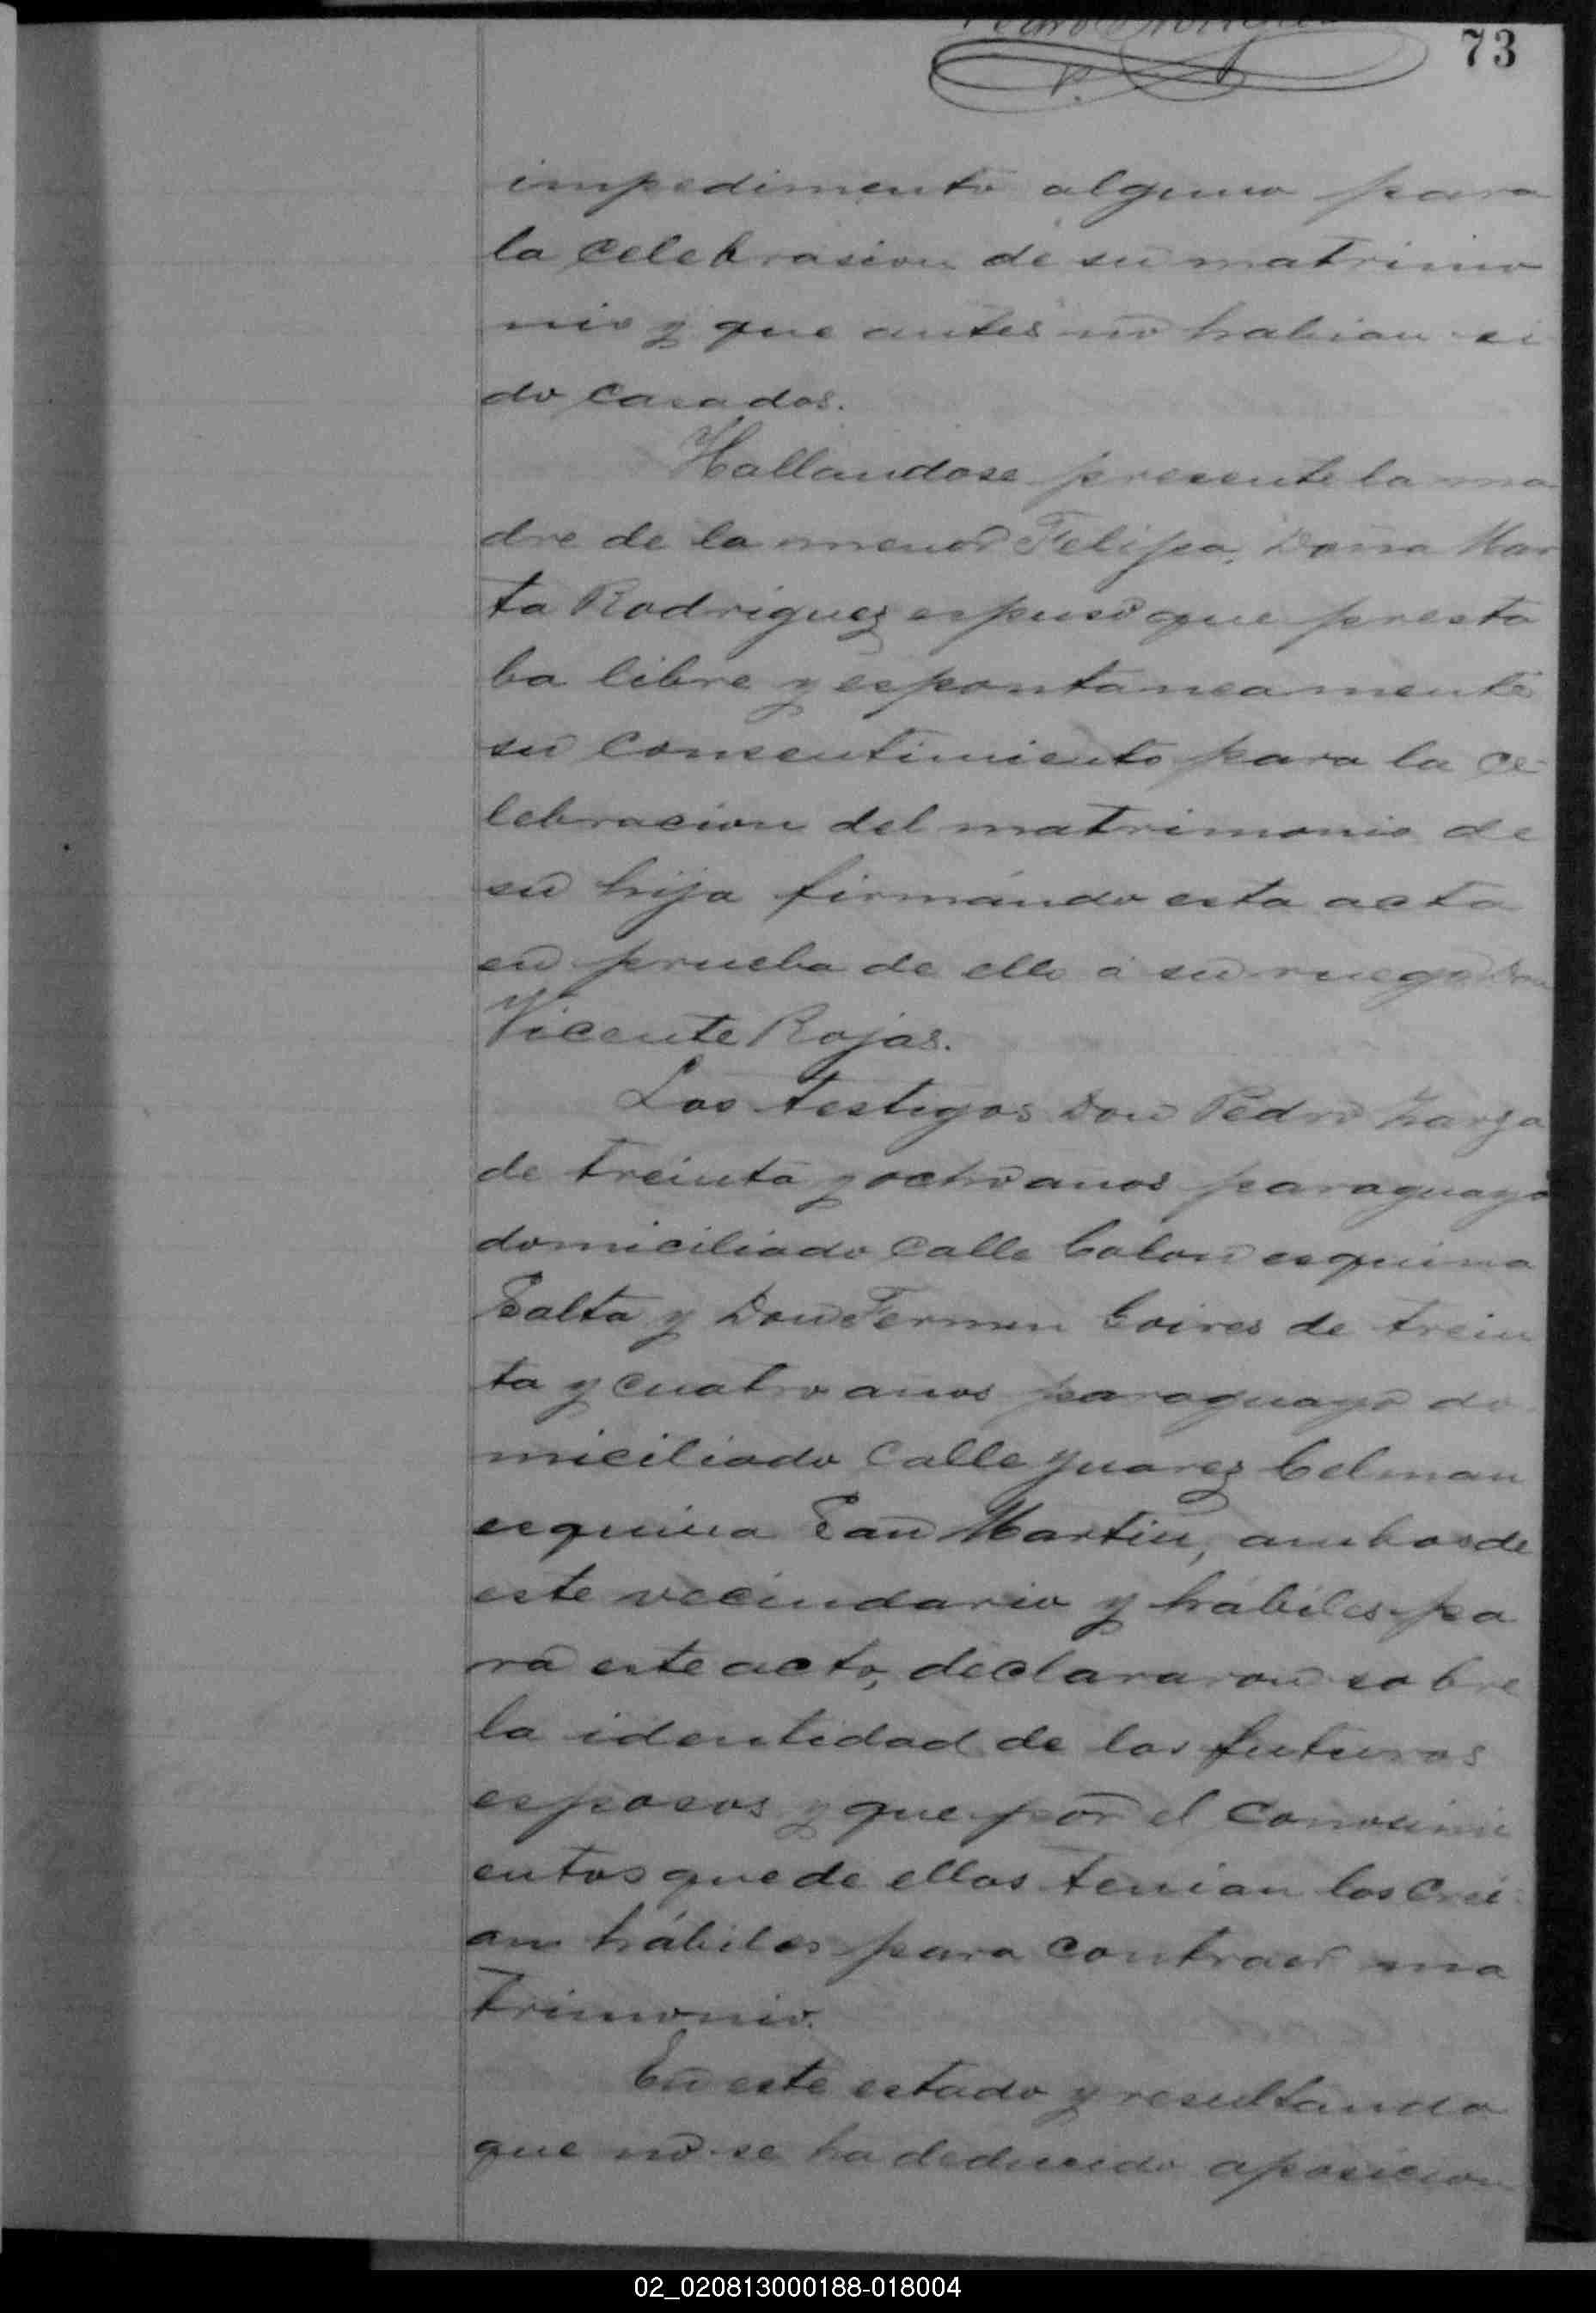 73
impedimento alguno para
la celebrasion de su matrimo
nio y que antes no habian si
do casados.
Hallandose presente la ma
dre de la menor Felipa, Doña Mar
ta Rodriguez espuso que presta
ba libre y espontaneamente
su consentimiento para la ce
lebracion del matrimonio de
su hija firmándo esta acta
en prueba de ello á su ruego Don
Vicente Rojas.
Los testigos Don Pedro
de treinta y ocho años paraguayo
domiciliado calle Colon esquina
Salta y Don Fermin Coires de trein
ta y cuatro anos paraguayo do
miciliado calle Juarez Celman
esquina San Martin, ambos de
este vecindario y hábiles pa
ra este acto, declararon sobre
la identidad de los futuros
esposos y que por el conosimi
entos que de ellos tenian los crei
an hábiles para contraer ma
trimonio.
En este estado y resultando
que no se ha deducido oposicion
02_020813000188-018004